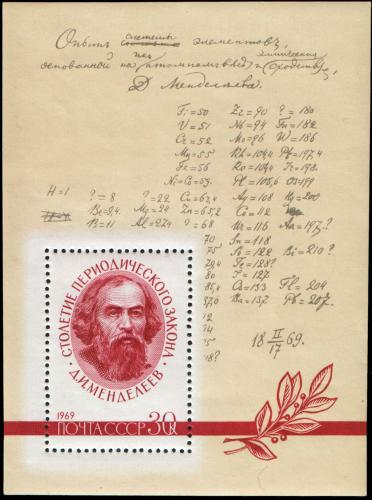 Опытъ системы элементовъ,
основанной на ихъ атомномъ вѣсѣ и химическомъ сходствѣ,
Д. Менделѣева.
Ti=50 Zr=90 ?=180
V=51 Nb=94 Ta=182
Cr=52 Mo=96 W=186
Mn=55 Rh=104,4 Pt=197,4
Fe=56 Ru=104,4 Ir=198
Ni=Co=59 Pd=106,6 Os=199
H=1 ?=8 ?=22 Cu=63,4 Ag=108 Hg=200
Be=9,4 Mg=24 Zn=65,2 Cd=112
B=11 Al=27,4 ?=68 Ur=116 Au=197?
70 Sn=118
75 Sb=122 Bi=210?
79,4 Te=128?
80 I=127
85,4 Cs=133 Tl=204
87,6 Ba=137 Pb=207.
18 II/17 69.
СТОЛЕТИЕ ПЕРИОДИЧЕСКОГО ЗАКОНА
Д.И.МЕНДЕЛЕЕВ
1969
ПОЧТА СССР 30К